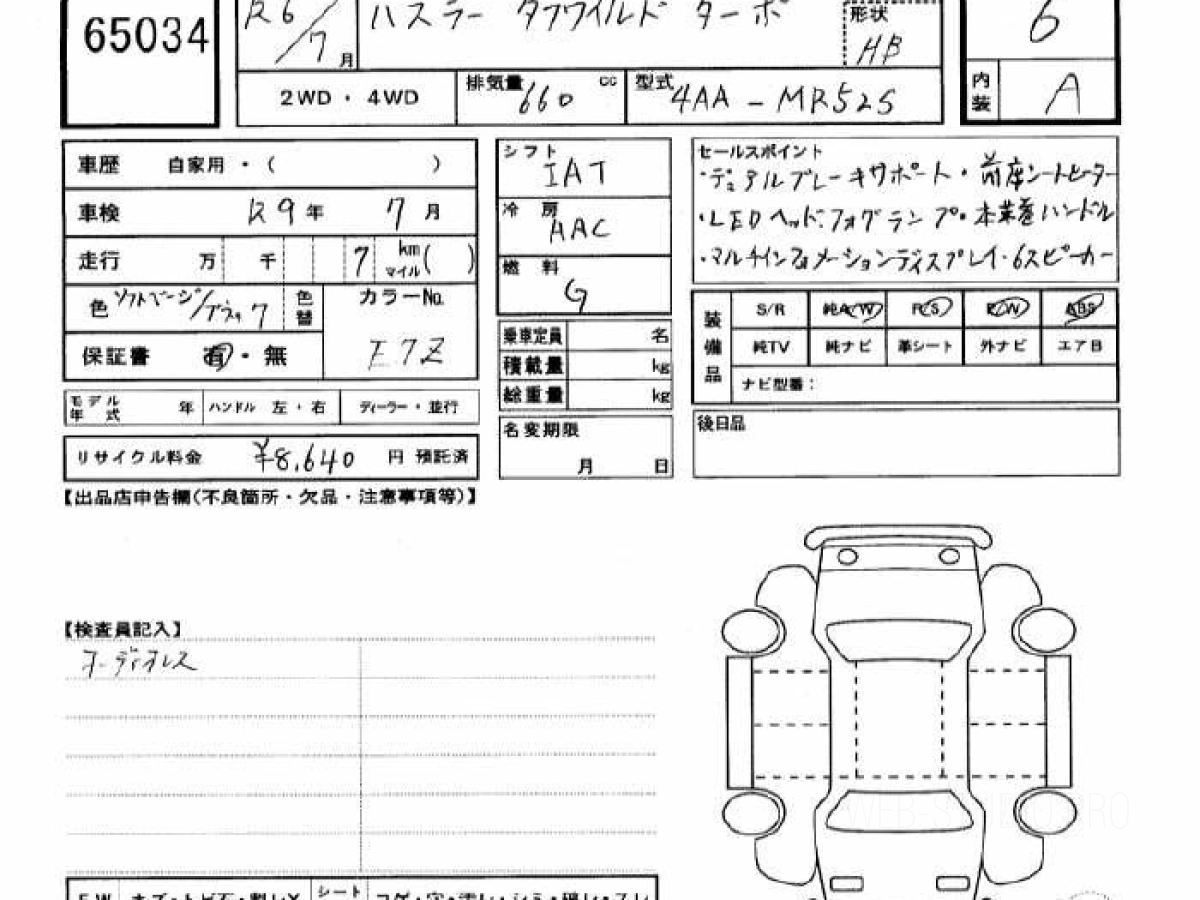 65034
R6/7月
ハスラー タフワイルド ターボ
形状 HB
6
2WD・4WD
排気量 660 cc
型式 4AA-MR52S
内装 A
車歴 自家用・( )
車検 R9年 7月
走行 万 千 7 km マイル ( )
色 ソフトベージュ/ブラック 色替
カラーNo. E7Z
保証書 有・無
モデル年式 年 ハンドル 左・右 ディーラー・並行
リサイクル料金 ¥8,640 円 預託済
シフト IAT
冷房 AAC
燃料 G
乗車定員 名
積載量 kg
総重量 kg
名変期限 月 日
セールスポイント
・デュアルブレーキサポート・前席シートヒーター
・LEDヘッド、フォグランプ・本革巻ハンドル
・マルチインフォメーションディスプレイ・6スピーカー
装備品
S/R 純AW P/S P/W ABS
純TV 純ナビ 革シート 外ナビ エアB
ナビ型番:
後日品
【出品店申告欄(不良箇所・欠品・注意事項等)】
【検査員記入】
オーディオレス
シート